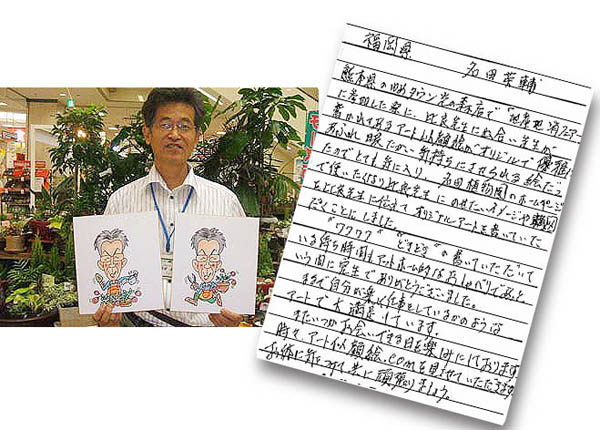 福岡県
名田英輔
熊本県のゆめタウン光の森店で"地産地消フェアー"
に参加した時に、比良先生に出会い、先生が
書かれておるアート似顔絵がオリジナルで優雅で
あふれ暖たかい気持ちにさせられる絵だっ
たのでとても気に入り、名田植物園のホームページ
で使いたくなり比良先生にのせたいイメージや職業
を比良先生に伝えてオリジナルアートを書いていた
だくことにしました。
"ワクワク" "どきどき"の書いていただいて
いる待ち時間もアットホーム的なおしゃべりであっと
いう間に完生でありがとうございました。
まるで自分が楽しく仕事をしているかのような
アートで大満足しています。
またいつかお会いできる日を楽しみにしております。
時々、アート似顔絵.comを見させていただきます
お体に気をつけて共に頑張りましょう。